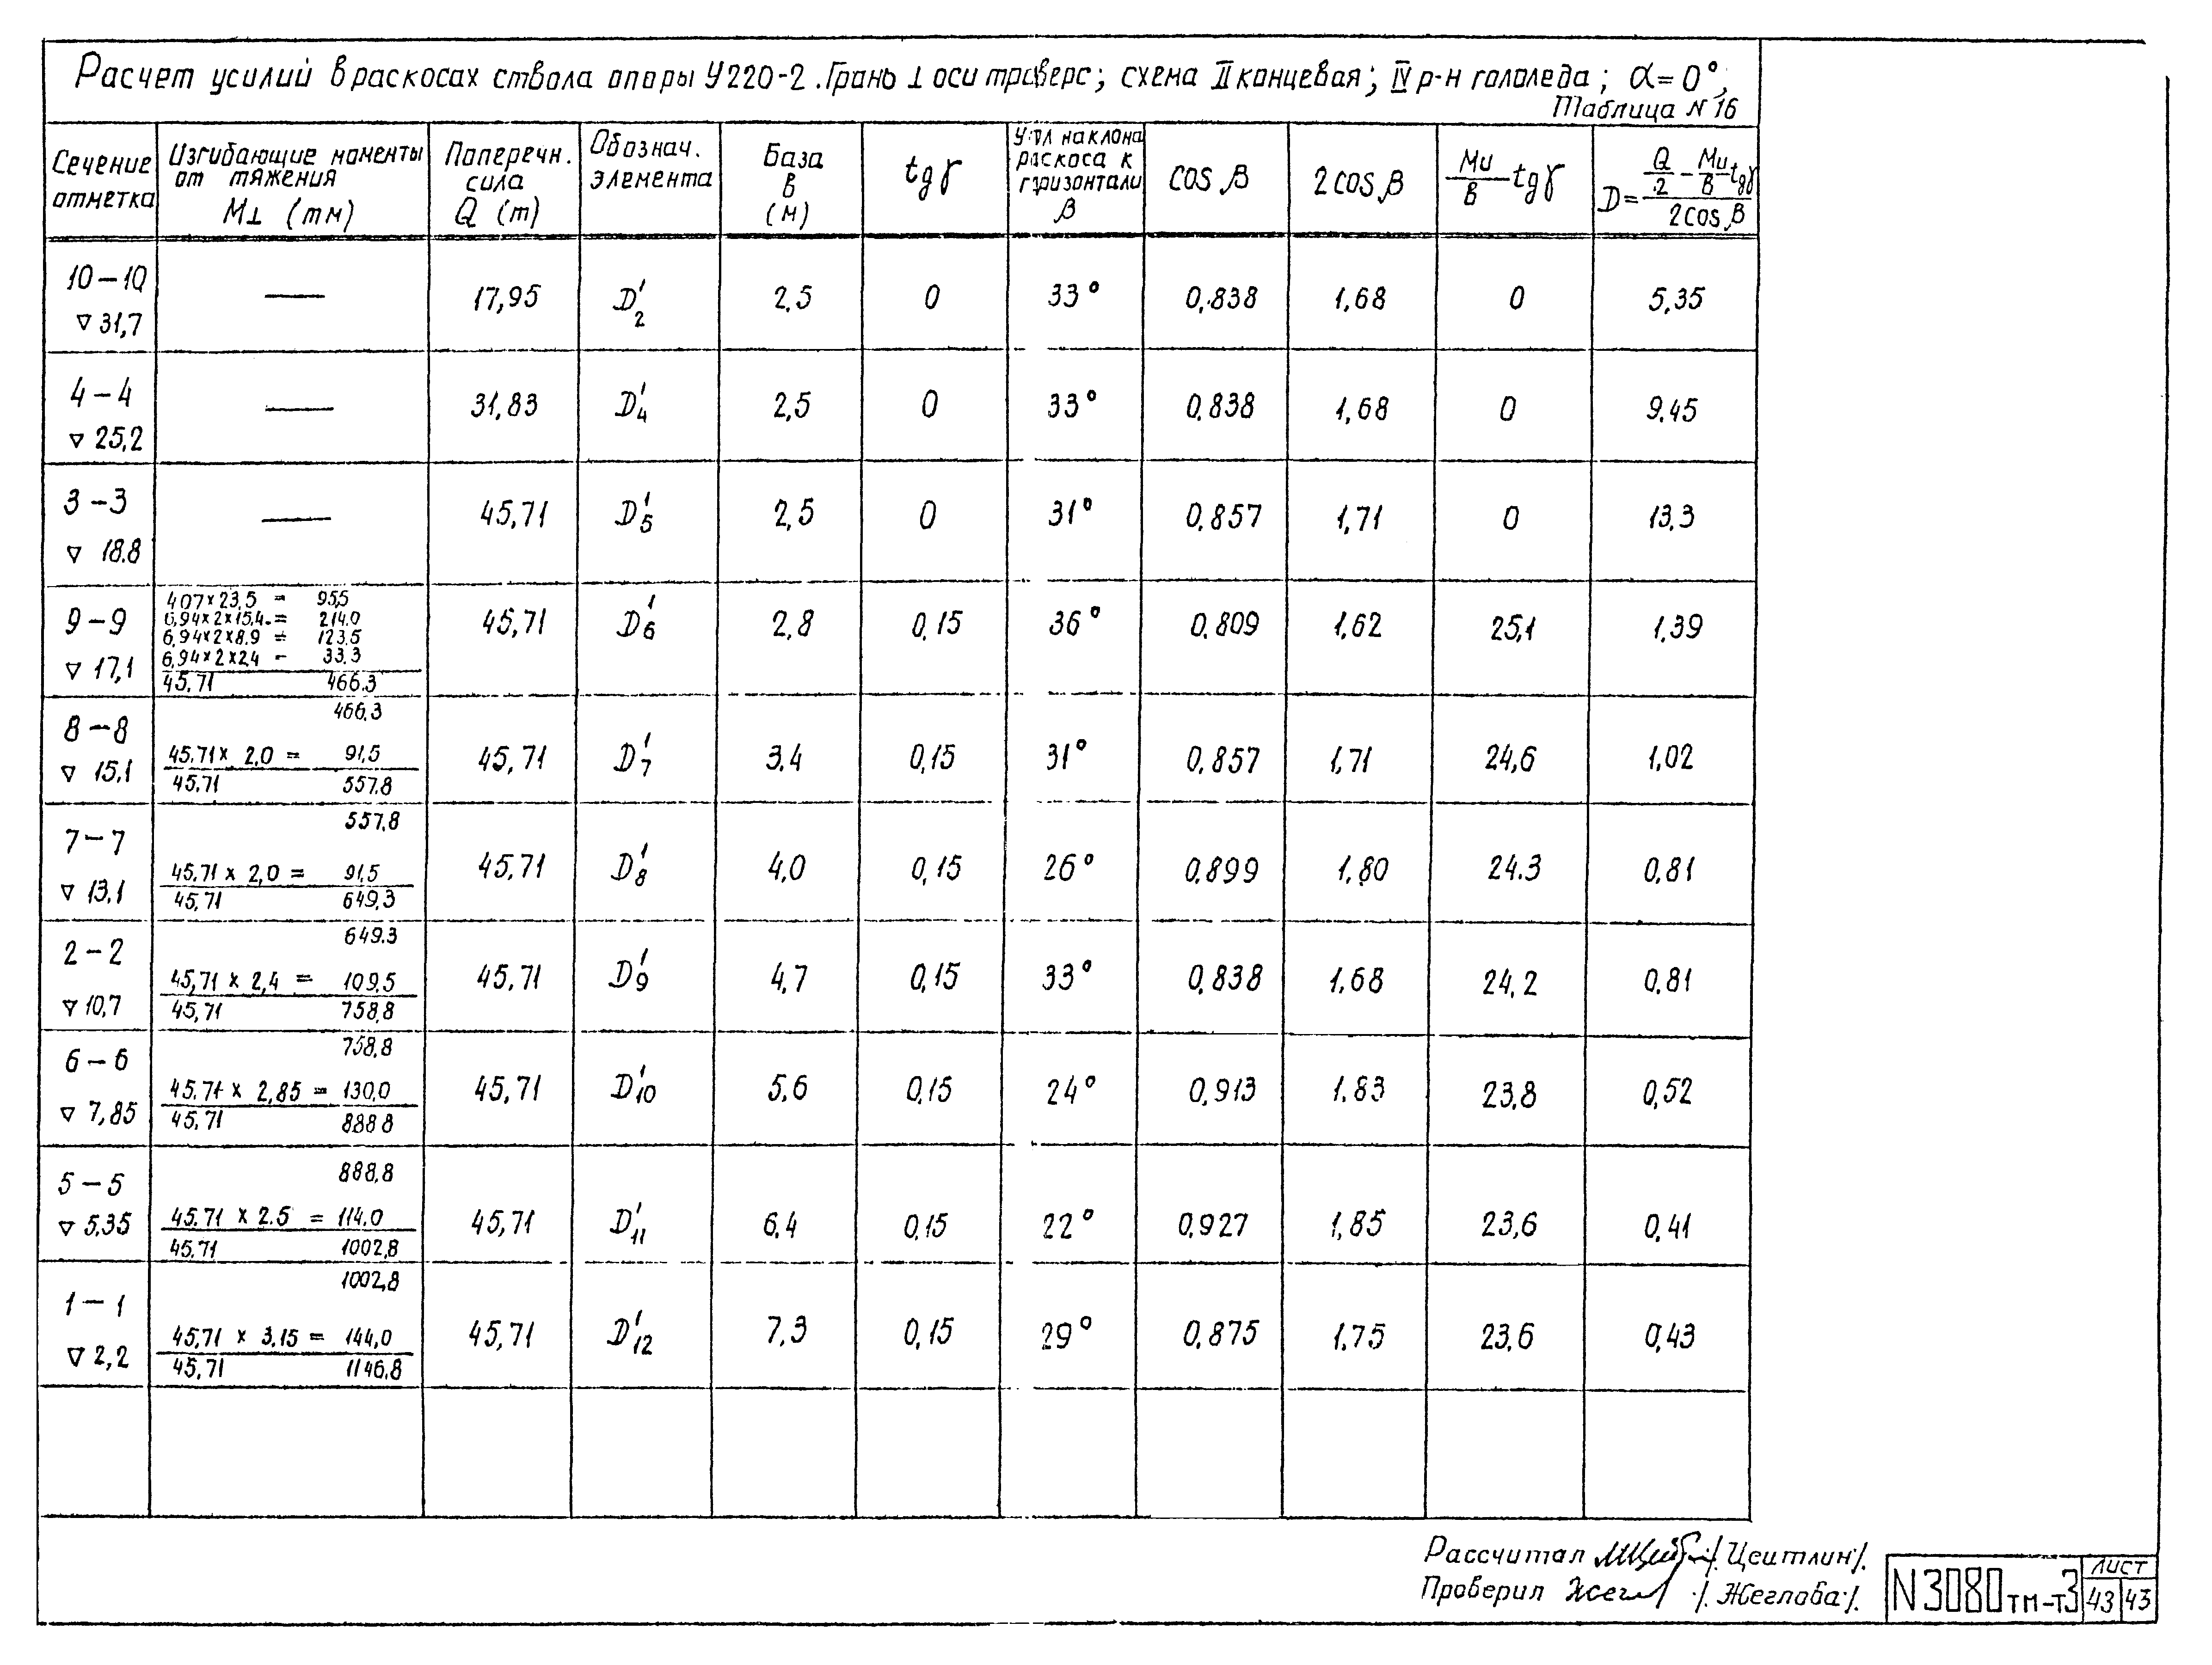 Расчет усилий в раскосах ствола опоры У220-2. Грань ⊥ оси траверс; схема II концевая; IV р-н гололеда; α=0°;
Таблица N 16
Сечение отметка | Изгибающие моменты от тяжения М⊥ (тм) | Поперечн. сила Q (т) | Обознач. элемента | База в (м) | tgγ | Угол наклона раскоса к горизонтали β | cosβ | 2cosβ | Mи/в tgγ | D= (Q/2 - Mи/в tgγ)/2cosβ
10-10 ▽31,7 | — | 17,95 | D'2 | 2,5 | 0 | 33° | 0,838 | 1,68 | 0 | 5,35
4-4 ▽25,2 | — | 31,83 | D'4 | 2,5 | 0 | 33° | 0,838 | 1,68 | 0 | 9,45
3-3 ▽18.8 | — | 45,71 | D'5 | 2,5 | 0 | 31° | 0,857 | 1,71 | 0 | 13,3
4,07×23,5 = 95,5
6,94×2×15,4 = 214.0
6,94×2×8,9 = 123,5
6,94×2×2,4 = 33.3
45.71 466.3
9-9 ▽17,1 | 45,71 | D'6 | 2,8 | 0,15 | 36° | 0,809 | 1,62 | 25,1 | 1,39
466,3
45.71× 2,0 = 91,5
45.71 557.8
8-8 ▽15,1 | 45,71 | D'7 | 3.4 | 0,15 | 31° | 0,857 | 1,71 | 24,6 | 1,02
557,8
45.71 × 2,0 = 91,5
45,71 649,3
7-7 ▽13,1 | 45,71 | D'8 | 4,0 | 0,15 | 26° | 0,899 | 1,80 | 24.3 | 0,81
649.3
45,71 × 2,4 = 109,5
45,71 758,8
2-2 ▽10,7 | 45,71 | D'9 | 4,7 | 0,15 | 33° | 0,838 | 1,68 | 24,2 | 0,81
758,8
45.71 × 2,85 = 130,0
45,71 888 8
6-6 ▽7,85 | 45,71 | D'10 | 5,6 | 0,15 | 24° | 0,913 | 1.83 | 23,8 | 0,52
888,8
45.71 × 2.5 = 114,0
45.71 1002,8
5-5 ▽5,35 | 45,71 | D'11 | 6,4 | 0,15 | 22° | 0,927 | 1,85 | 23,6 | 0,41
1002,8
45,71 × 3,15 = 144,0
45,71 1146,8
1-1 ▽2,2 | 45,71 | D'12 | 7,3 | 0,15 | 29° | 0,875 | 1.75 | 23,6 | 0,43
Рассчитал /Цейтлин/.
Проверил Жегл /Жеглова/.
N3080тм-т3
лист
43 43